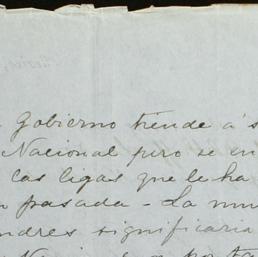 Gobierno tiende a s
Nacional pero se en
cas ligas que le ha
n pasada - La mu
ndres significaria